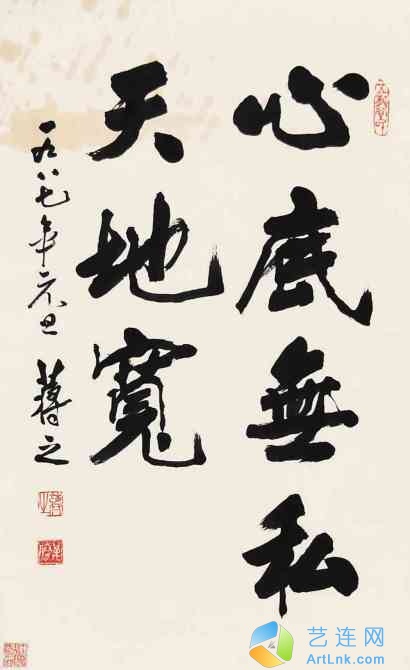 心底無私
天地寬
一九八七年元旦 之
艺连网
ArtLnk.com